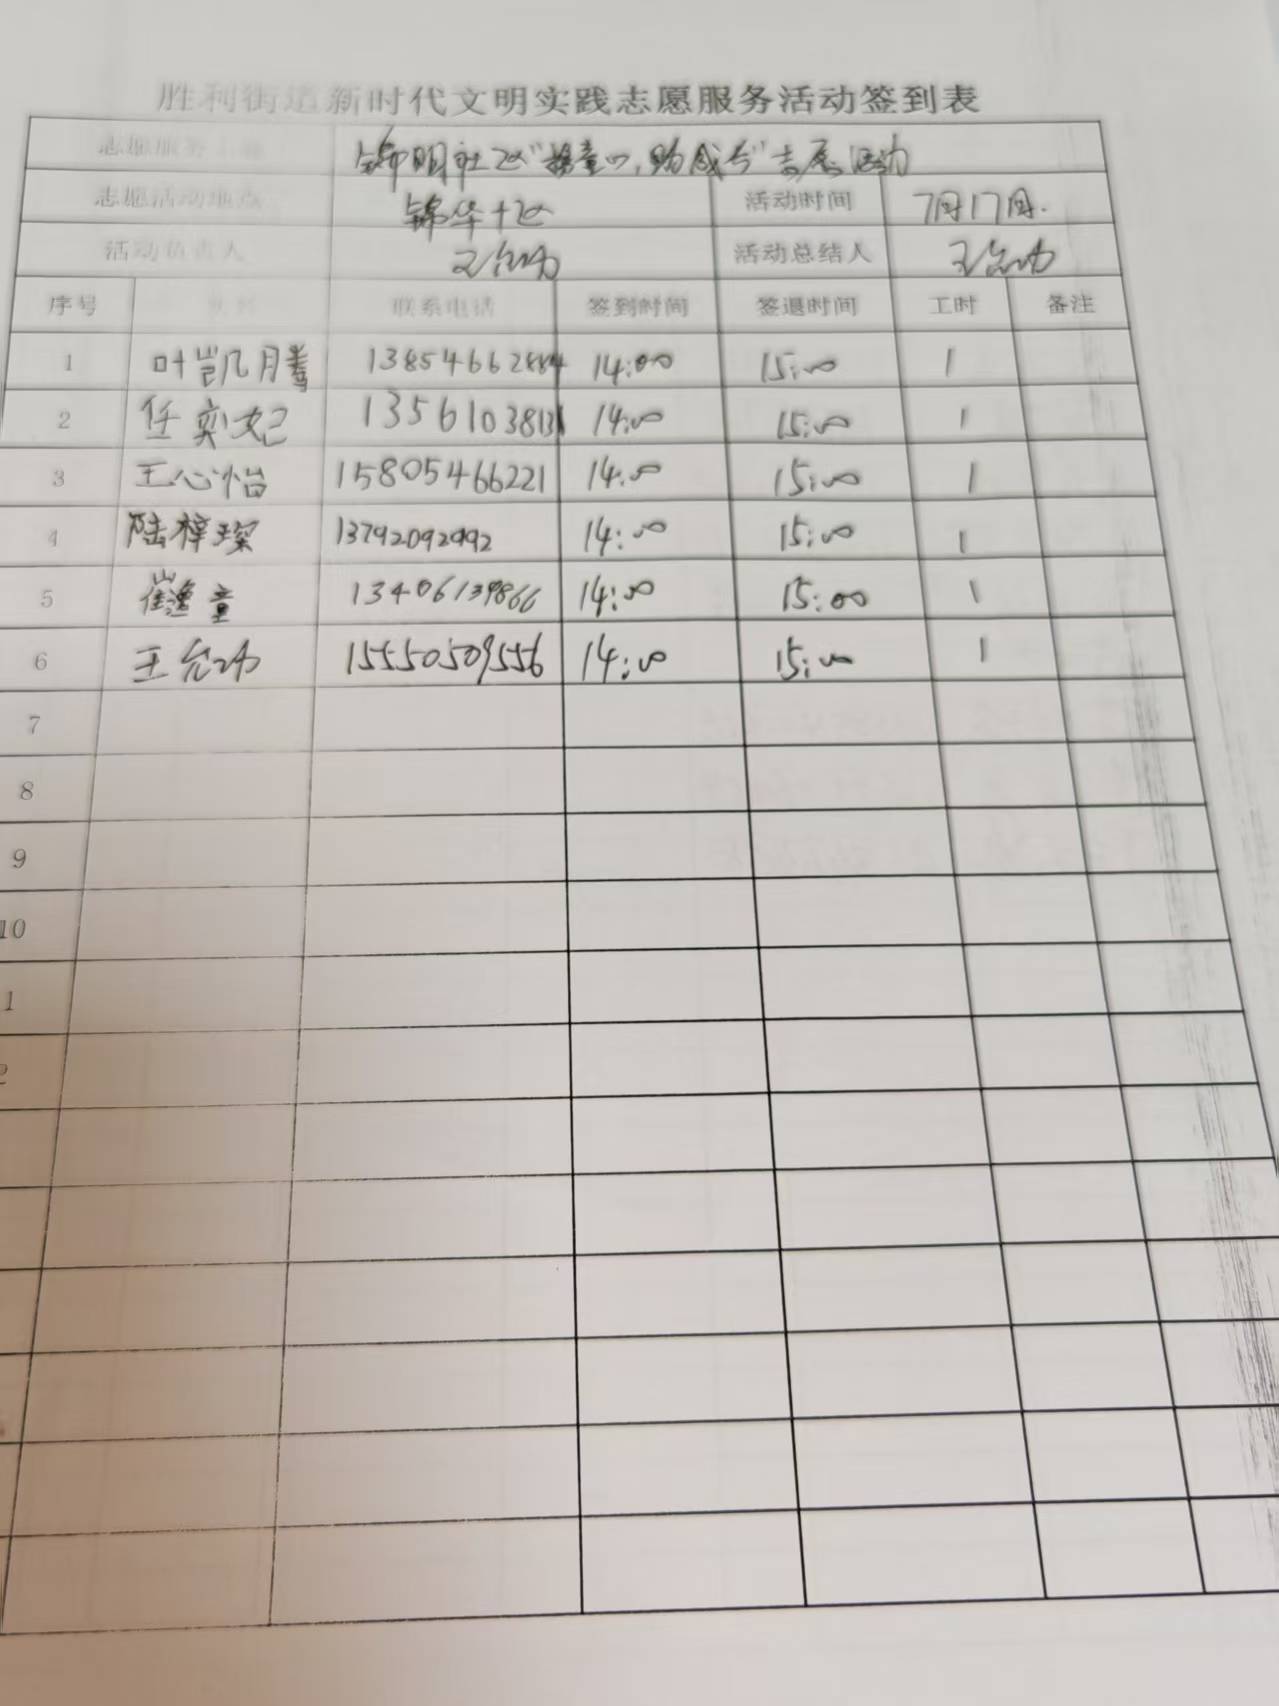 胜利街道新时代文明实践志愿服务活动签到表
志愿服务主题 锦明社区" ,助成长" 活动
志愿活动地点 锦华十区 活动时间 7月17日.
活动负责人 王允功 活动总结人 王允功
序号 联系电话 签到时间 签退时间 工时 备注
1 叶凯月 13854662884 14:00 15:00 1
2 任奕妃 1356103813 14:00 15:00 1
3 王心怡 15805466221 14:00 15:00 1
4 陆梓璨 13792092992 14:00 15:00 1
5 崔 童 13406139866 14:00 15:00 1
6 王允功 15550509556 14:00 15:00 1
7
8
9
10
1
2